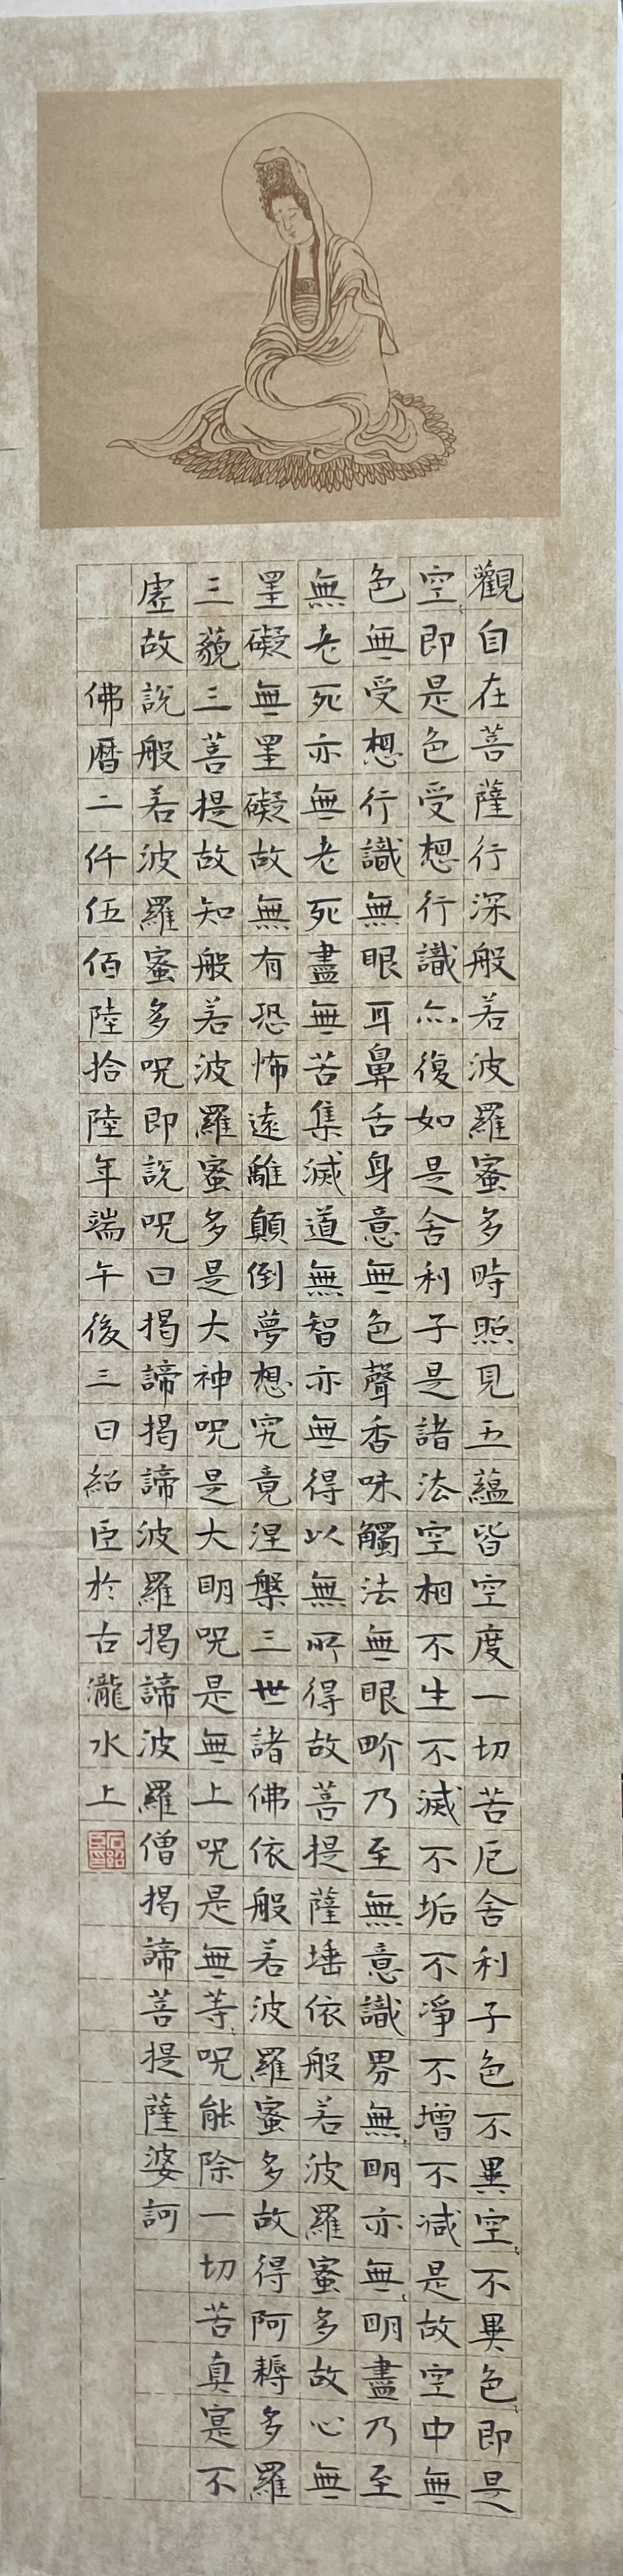 觀自在菩薩行深般若波羅蜜多時照見五蘊皆空度一切苦厄舍利子色不異空〻不異色〻即是
空〻即是色受想行識亦復如是舍利子是諸法空相不生不滅不垢不淨不增不減是故空中無
色無受想行識無眼耳鼻舌身意無色聲香味觸法無眼界乃至無意識界無〻明亦無〻明盡乃至
無老死亦無老死盡無苦集滅道無智亦無得以無所得故菩提薩埵依般若波羅蜜多故心無
罣礙無罣礙故無有恐怖遠離顛倒夢想究竟涅槃三世諸佛依般若波羅蜜多故得阿耨多羅
三藐三菩提故知般若波羅蜜多是大神呪是大明呪是無上呪是無等〻呪能除一切苦真實不
虛故說般若波羅蜜多呪即說呪曰揭諦揭諦波羅揭諦波羅僧揭諦菩提薩婆訶
佛曆二仟伍佰陸拾陸年端午後三日紹臣於古瀧水上
石紹臣印